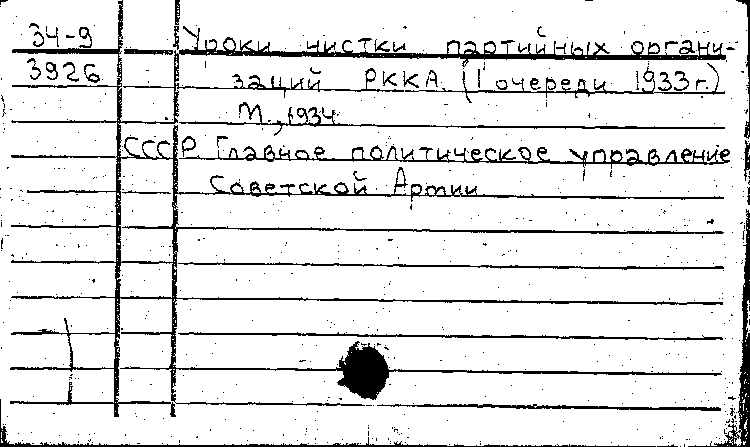 34-9 Уроки чистки партийных органи-
3926 заций РККА. (I очереди 1933 г.)
М., 1934.
СССР. Главное политическое управление
Советской Армии